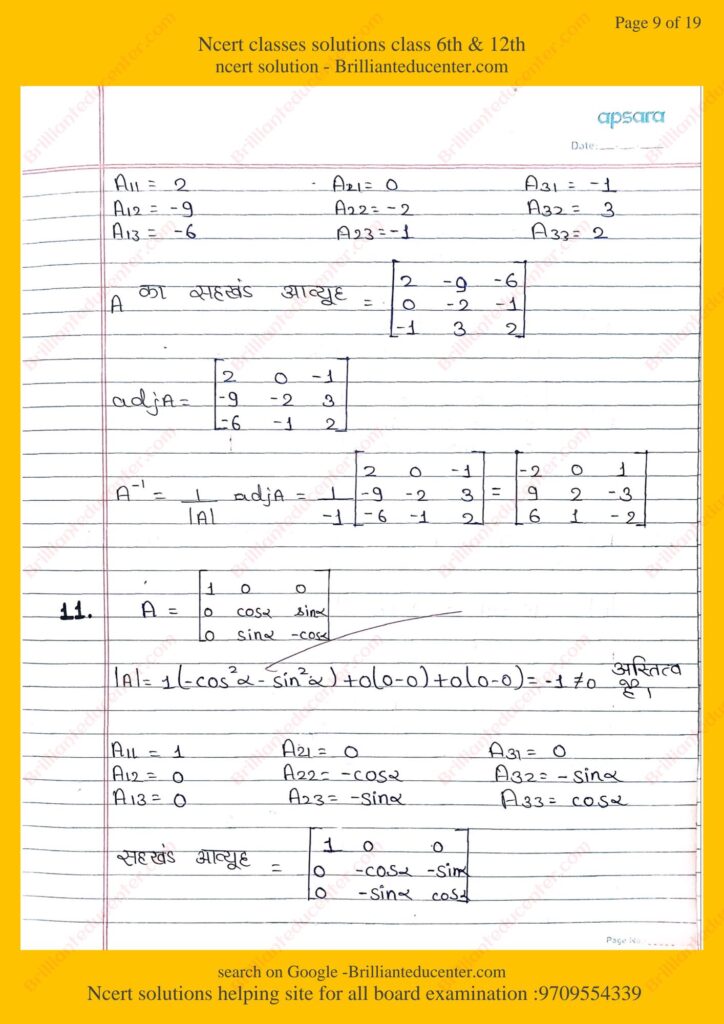 Page 9 of 19
Ncert classes solutions class 6th & 12th
ncert solution - Brillianteducenter.com
apsara
Date:
A11 = 2 A21 = 0 A31 = -1
A12 = -9 A22 = -2 A32 = 3
A13 = -6 A23 = -1 A33 = 2
A का सहखंड आव्यूह = [2 -9 -6
0 -2 -1
-1 3 2]
adjA = [2 0 -1
-9 -2 3
-6 -1 2]
A⁻¹ = 1/|A| adjA = 1/-1 [2 0 -1
-9 -2 3
-6 -1 2] = [-2 0 1
9 2 -3
6 1 -2]
11. A = [1 0 0
0 cosα sinα
0 sinα -cosα]
|A| = 1(-cos²α - sin²α) + 0(0-0) + 0(0-0) = -1 ≠ 0 अस्तित्व
है।
A11 = 1 A21 = 0 A31 = 0
A12 = 0 A22 = -cosα A32 = -sinα
A13 = 0 A23 = -sinα A33 = cosα
सहखंड आव्यूह = [1 0 0
0 -cosα -sinα
0 -sinα cosα]
Page No.
search on Google -Brillianteducenter.com
Ncert solutions helping site for all board examination :9709554339